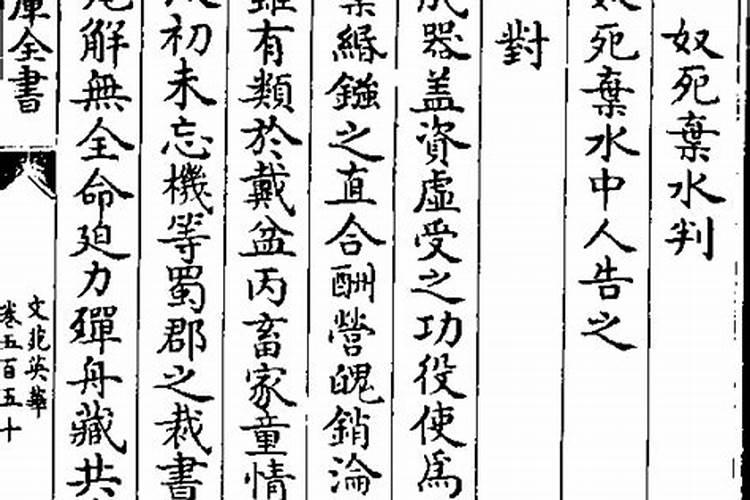 奴死棄水判
奴死棄水中人告之
對
成器盖資虛受之功役使爲
緡鏹之直合酬營魄銷淪
雖有類於戴盆丙畜家童情
初未忘機等蜀郡之裁書
解無全命迫力殫舟藏共
庫全書
文苑英華
卷五百五十